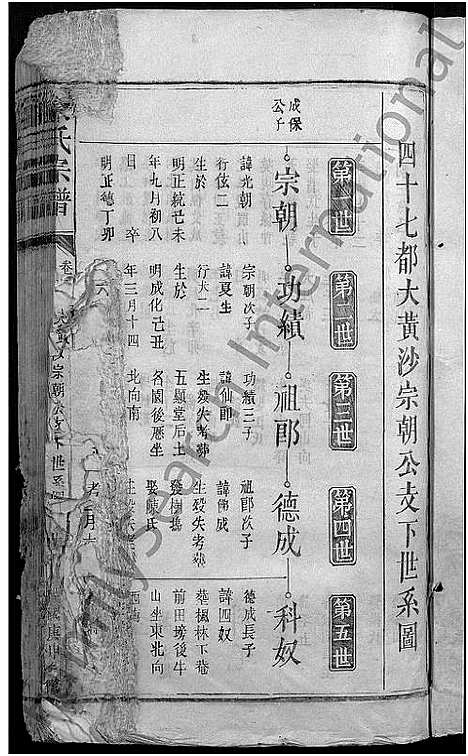 四十七都大黃沙宗朝公支下世系圖
第一世
第二世
第三世
第四世
第五世
成保公子
宗朝
功績
祖郎
德成
科奴
諱光朝
行伭二
生於
明正統己未
年九月初八
日 卒
明正德丁卯
宗朝次子
諱夏生
行大二
生於
明成化己丑
年三月十四
功績三子
諱仙郎
生歿失考葬
五顯堂后土
名園後懸坐
北向南
祖郎次子
諱佛成
生歿失考葬
娶陳氏
德成長子
諱四奴
葬楓林下菴
前田塝後牛
山坐東北向
氏宗譜
宗朝
世系
familysearch International